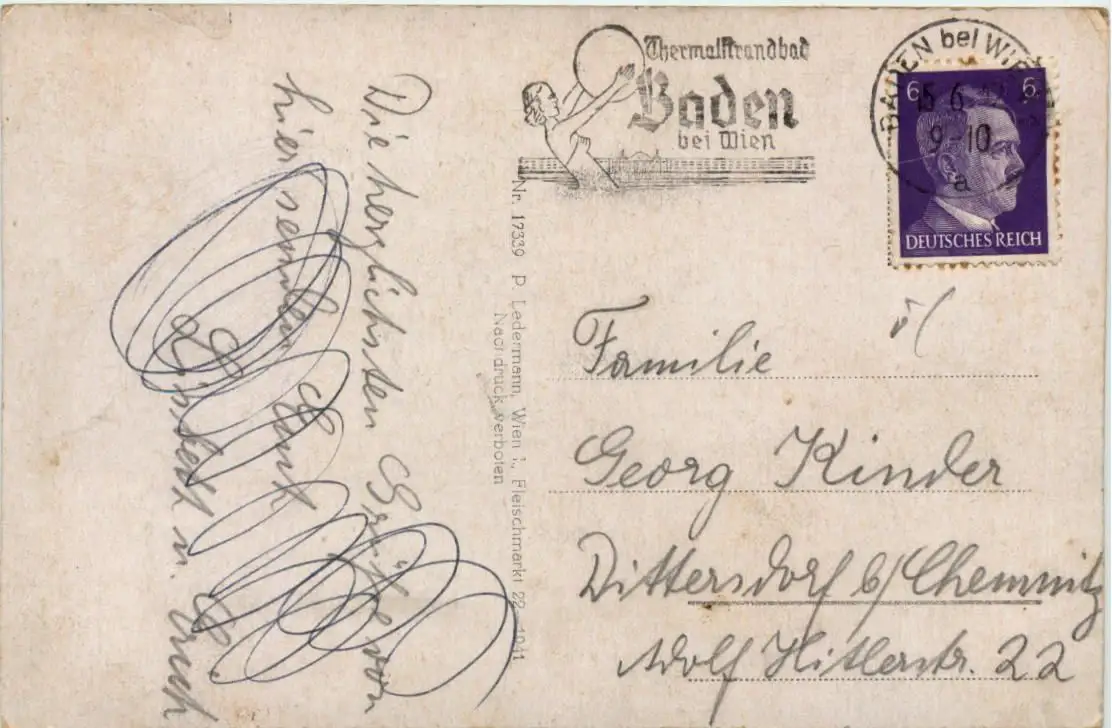 Thermalstrandbad
Baden
bei Wien
BADEN bel WIEN
15. 6. 42
9-10
a
6 6
DEUTSCHES REICH
Die herzlichsten Grüße von
hier senden Euch
Lisbeth u. Erich
Nr. 17339 P. Ledermann, Wien I., Fleischmarkt 22 1941
Nachdruck verboten
Familie
Georg Kinder
Dittersdorf b/Chemnitz
Adolf Hitlerstr. 22